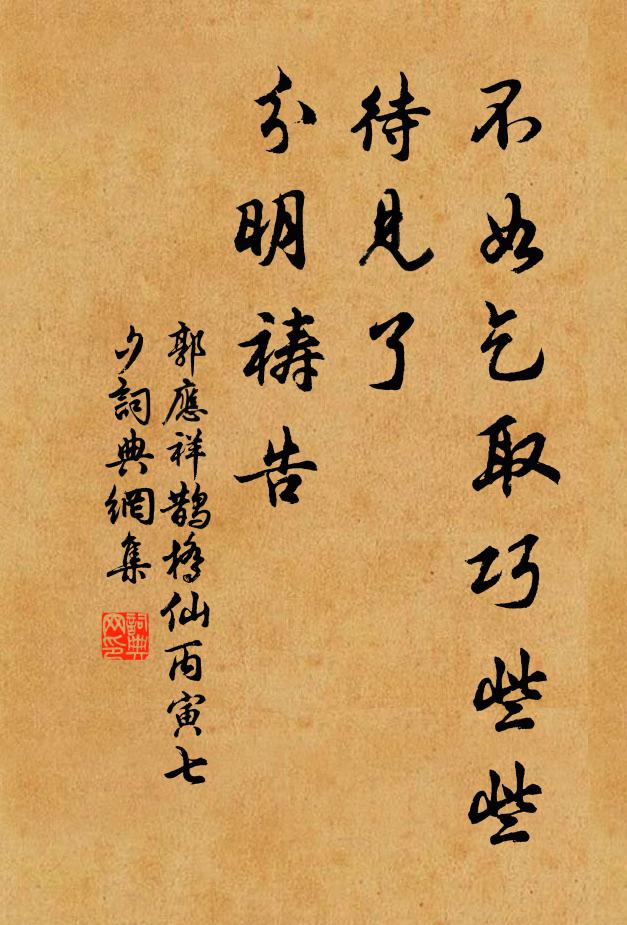 不如乞取巧些些
待見了
分明祷告
郭應祥鵲橋仙丙寅七
夕詞典網集
詞典网印